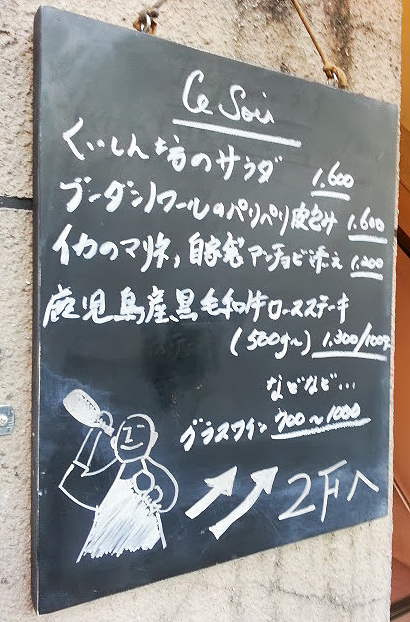 Ce Soir
くいしん坊のサラダ 1,600
ブーダンノワールのパリパリ皮包み 1,600
イカのマリネ, 自家製アンチョビ添え 1,200
鹿児島産黒毛和牛ロースステーキ
(500g〜) 1,300/100g
などなど…
グラスワイン 700〜1000
2Fへ